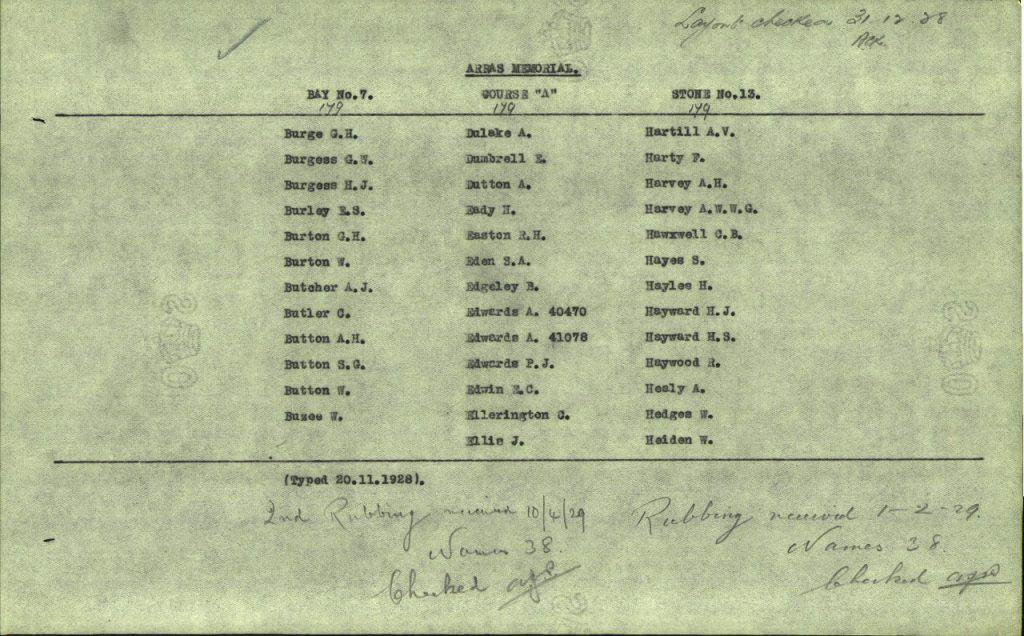 Layout checked 31.12.28
ARRAS MEMORIAL.
BAY No.7. COURSE "A" STONE No.13.
179 179 179
Burge G.H. Duleke A. Hartill A.V.
Burgess G.W. Dumbrell E. Harty F.
Burgess H.J. Dutton A. Harvey A.H.
Burley E.S. Eady H. Harvey A.W.W.G.
Burton G.H. Easton R.H. Hawxwell C.B.
Burton W. Eden S.A. Hayes S.
Butcher A.J. Edgeley B. Haylee H.
Butler C. Edwards A. 40470 Hayward H.J.
Button A.H. Edwards A. 41078 Hayward H.S.
Button S.G. Edwards P.J. Haywood R.
Button W. Edwin E.C. Healy A.
Buzee W. Ellerington C. Hedges W.
Ellis J. Heiden W.
(Typed 20.11.1928).
2nd Rubbing received 10/4/29 Rubbing received 1-2-29.
Names 38. Names 38.
Checked Checked